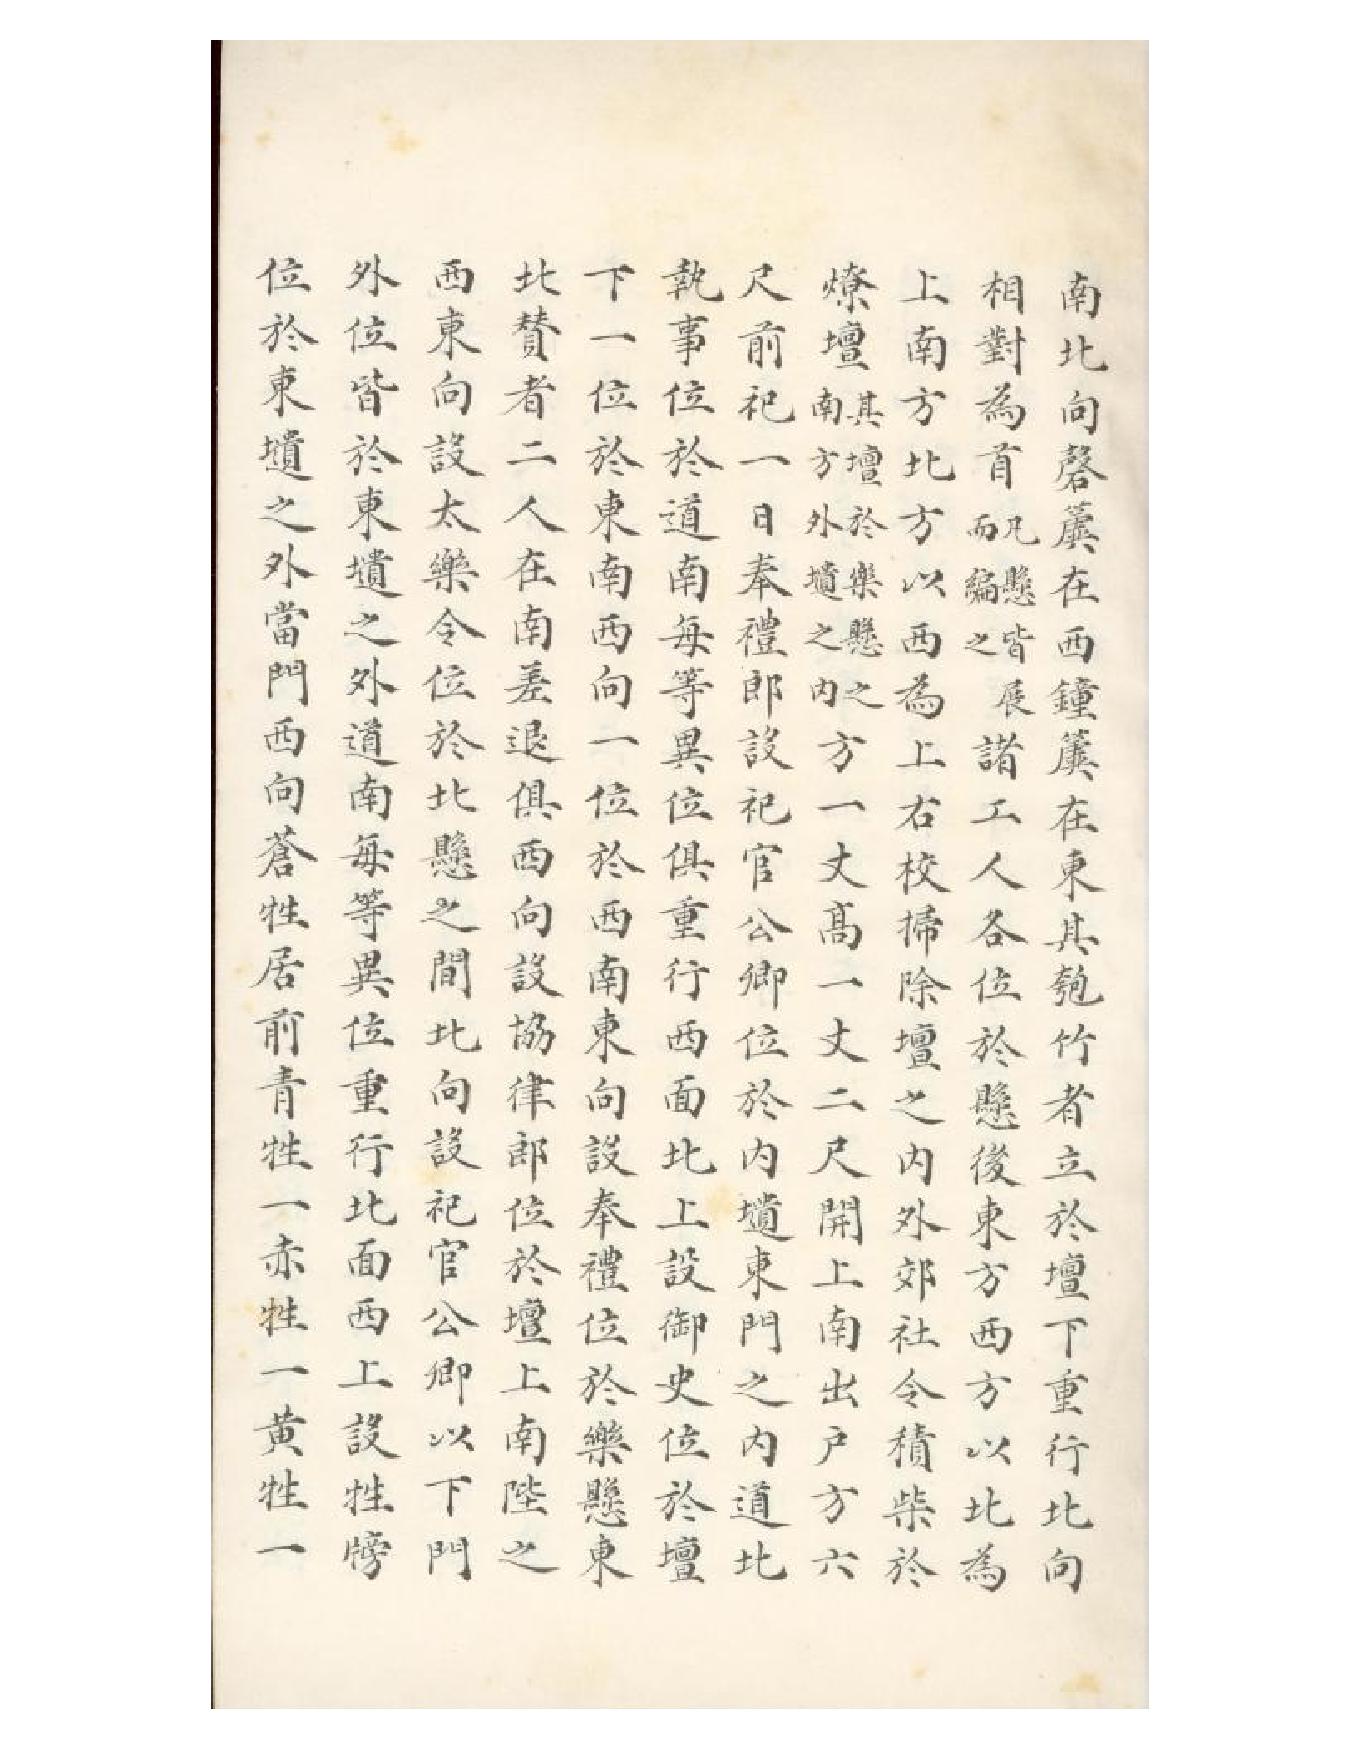 南北向磬簴在西鐘簴在東其匏竹者立於壇下重行北向
相對為首凡懸皆展而編之諸工人各位於懸後東方西方以北為
上南方北方以西為上右校掃除壇之内外郊社令積柴於
燎壇其壇於樂懸之南方外壝之内方一丈高一丈二尺開上南出戶方六
尺前祀一日奉禮郎設祀官公卿位於内壝東門之内道北
執事位於道南每等異位俱重行西面北上設御史位於壇
下一位於東南西向一位於西南東向設奉禮位於樂懸東
北贊者二人在南差退俱西向設協律郎位於壇上南陛之
西東向設太樂令位於北懸之間北向設祀官公卿以下門
外位皆於東壝之外道南每等異位重行北面西上設牲牓
位於東壝之外當門西向蒼牲居前青牲一赤牲一黄牲一